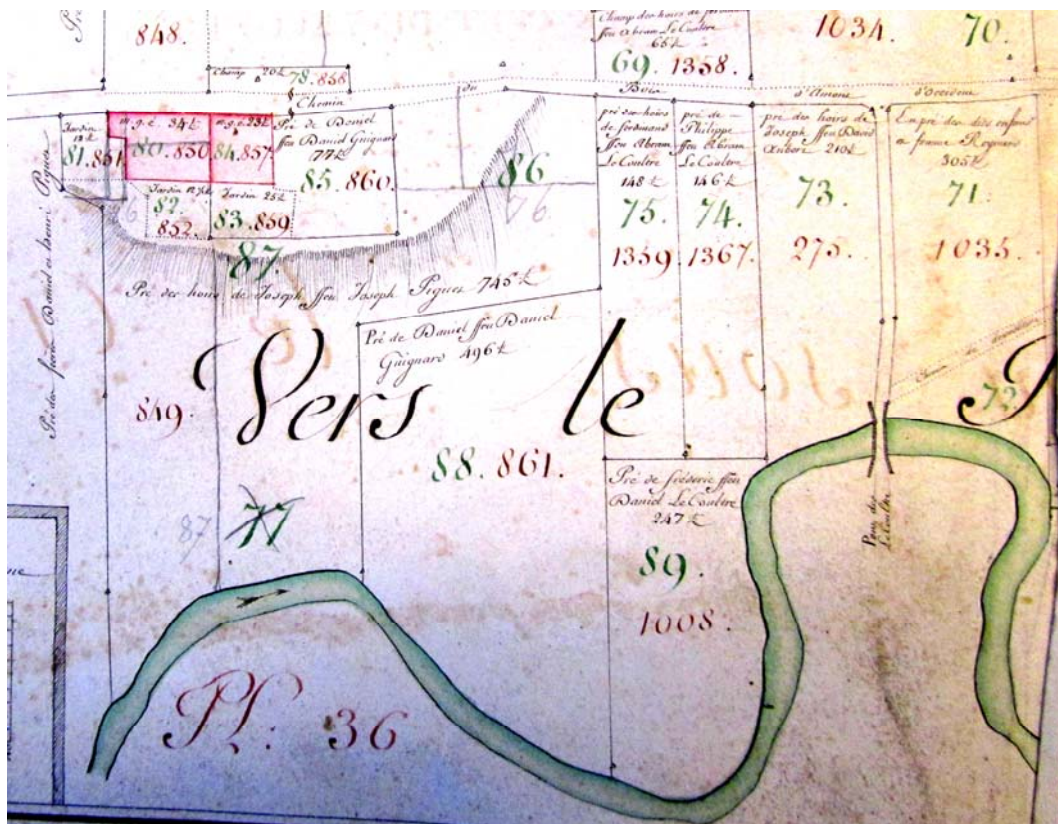 848.
Champ des hoirs de
ffeu Abram Le Coultre
65 t
69. 1358.
1034.
70.
Champ 20 t 78. 858
Chemin
du
Bois
d'Amont
d'Occident
Jardin
81. 851
m.g.é. 34 t
80. 850
m.g.é. 23 t
84. 857.
Pré de Daniel
ffeu Daniel Guignard
77 t
85. 860.
86
76
Jardin
82.
852.
Jardin 25 t
83. 859
87
Pré des hoirs de Joseph ffeu Joseph Piguet 745 t
pré des hoirs
de ferdinand
ffeu Abram
Le Coultre
148 t
75.
1359.
pré de
Philippe
ffeu Abram
Le Coultre
146 t
74.
1367.
pré des hoirs de
Joseph ffeu David
Aubert 210 t
73.
275.
En pré des dits enfans
305 t
71.
1035.
Pré des freres Daniel et henri Piguet
Pré de Daniel ffeu Daniel
Guignard 496 t
849.
Vers le
88. 861.
72
87 77
Pré de fréderic ffeu
Daniel Le Coultre
247 t
89.
1008.
Pont des
Le Coultre
Pl: 36